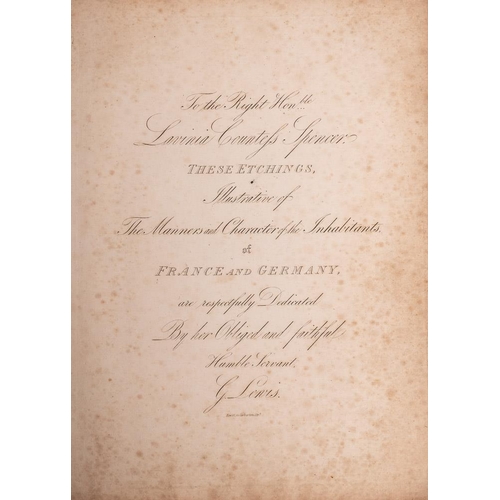 To the Right Hon.ble
Lavinia Countess Spencer.
THESE ETCHINGS,
Illustrative of
The Manners and Character of the Inhabitants,
of
FRANCE AND GERMANY,
are respectfully Dedicated
By her Obliged and faithful
Humble Servant,
G. Lewis.